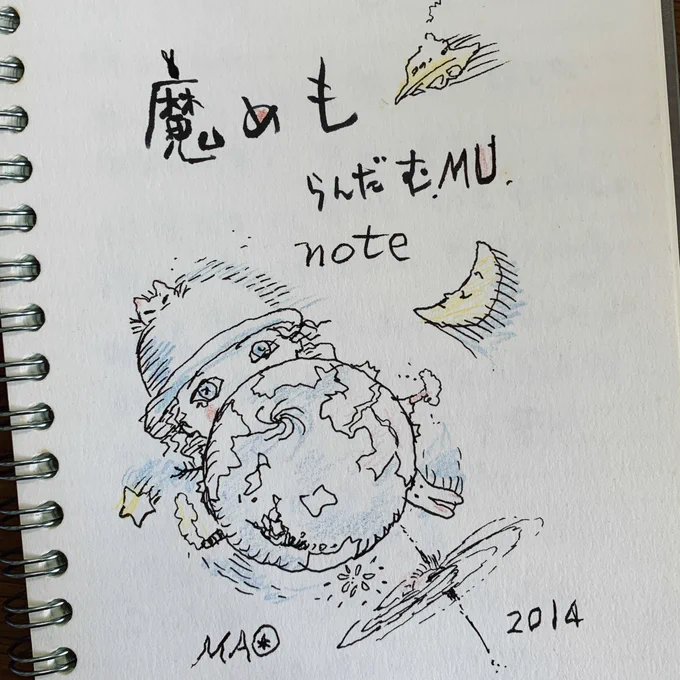 魔めも
らんだむ.MU.
note
MA
2014